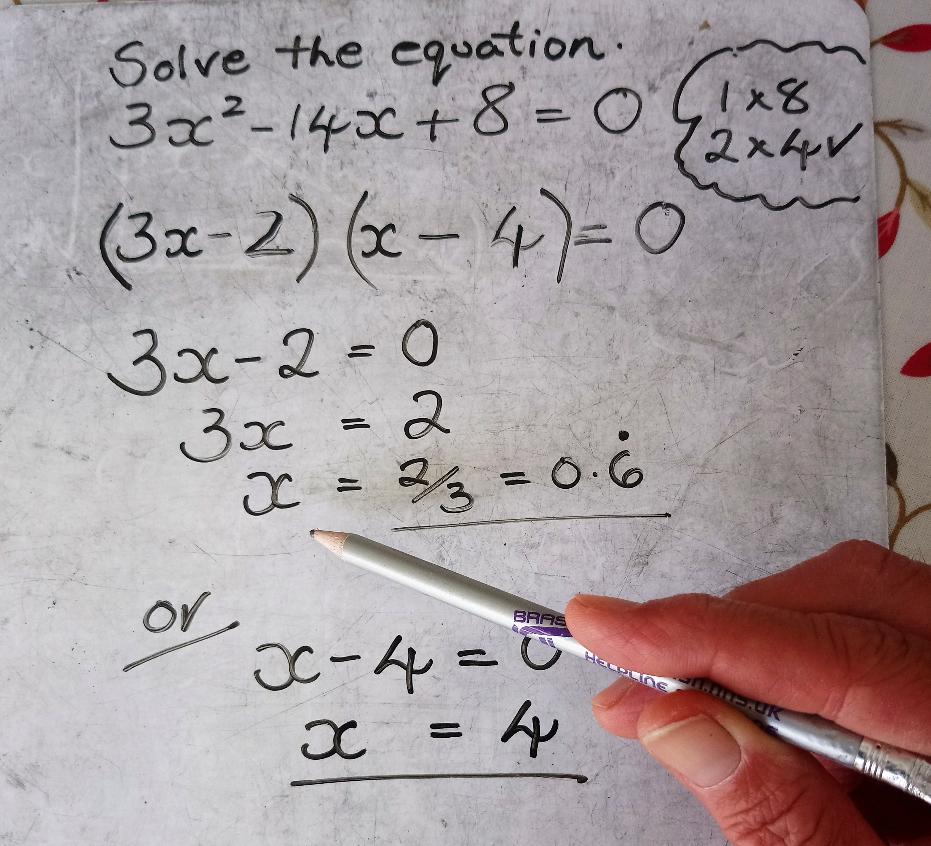 Solve the equation.
3x² - 14x + 8 = 0
1 x 8
2 x 4 ✓
(3x - 2) (x - 4) = 0
3x - 2 = 0
3x = 2
x = 2/3 = 0.6̇
or
x - 4 = 0
x = 4
BRAS
HELPLINE
.nhs.uk